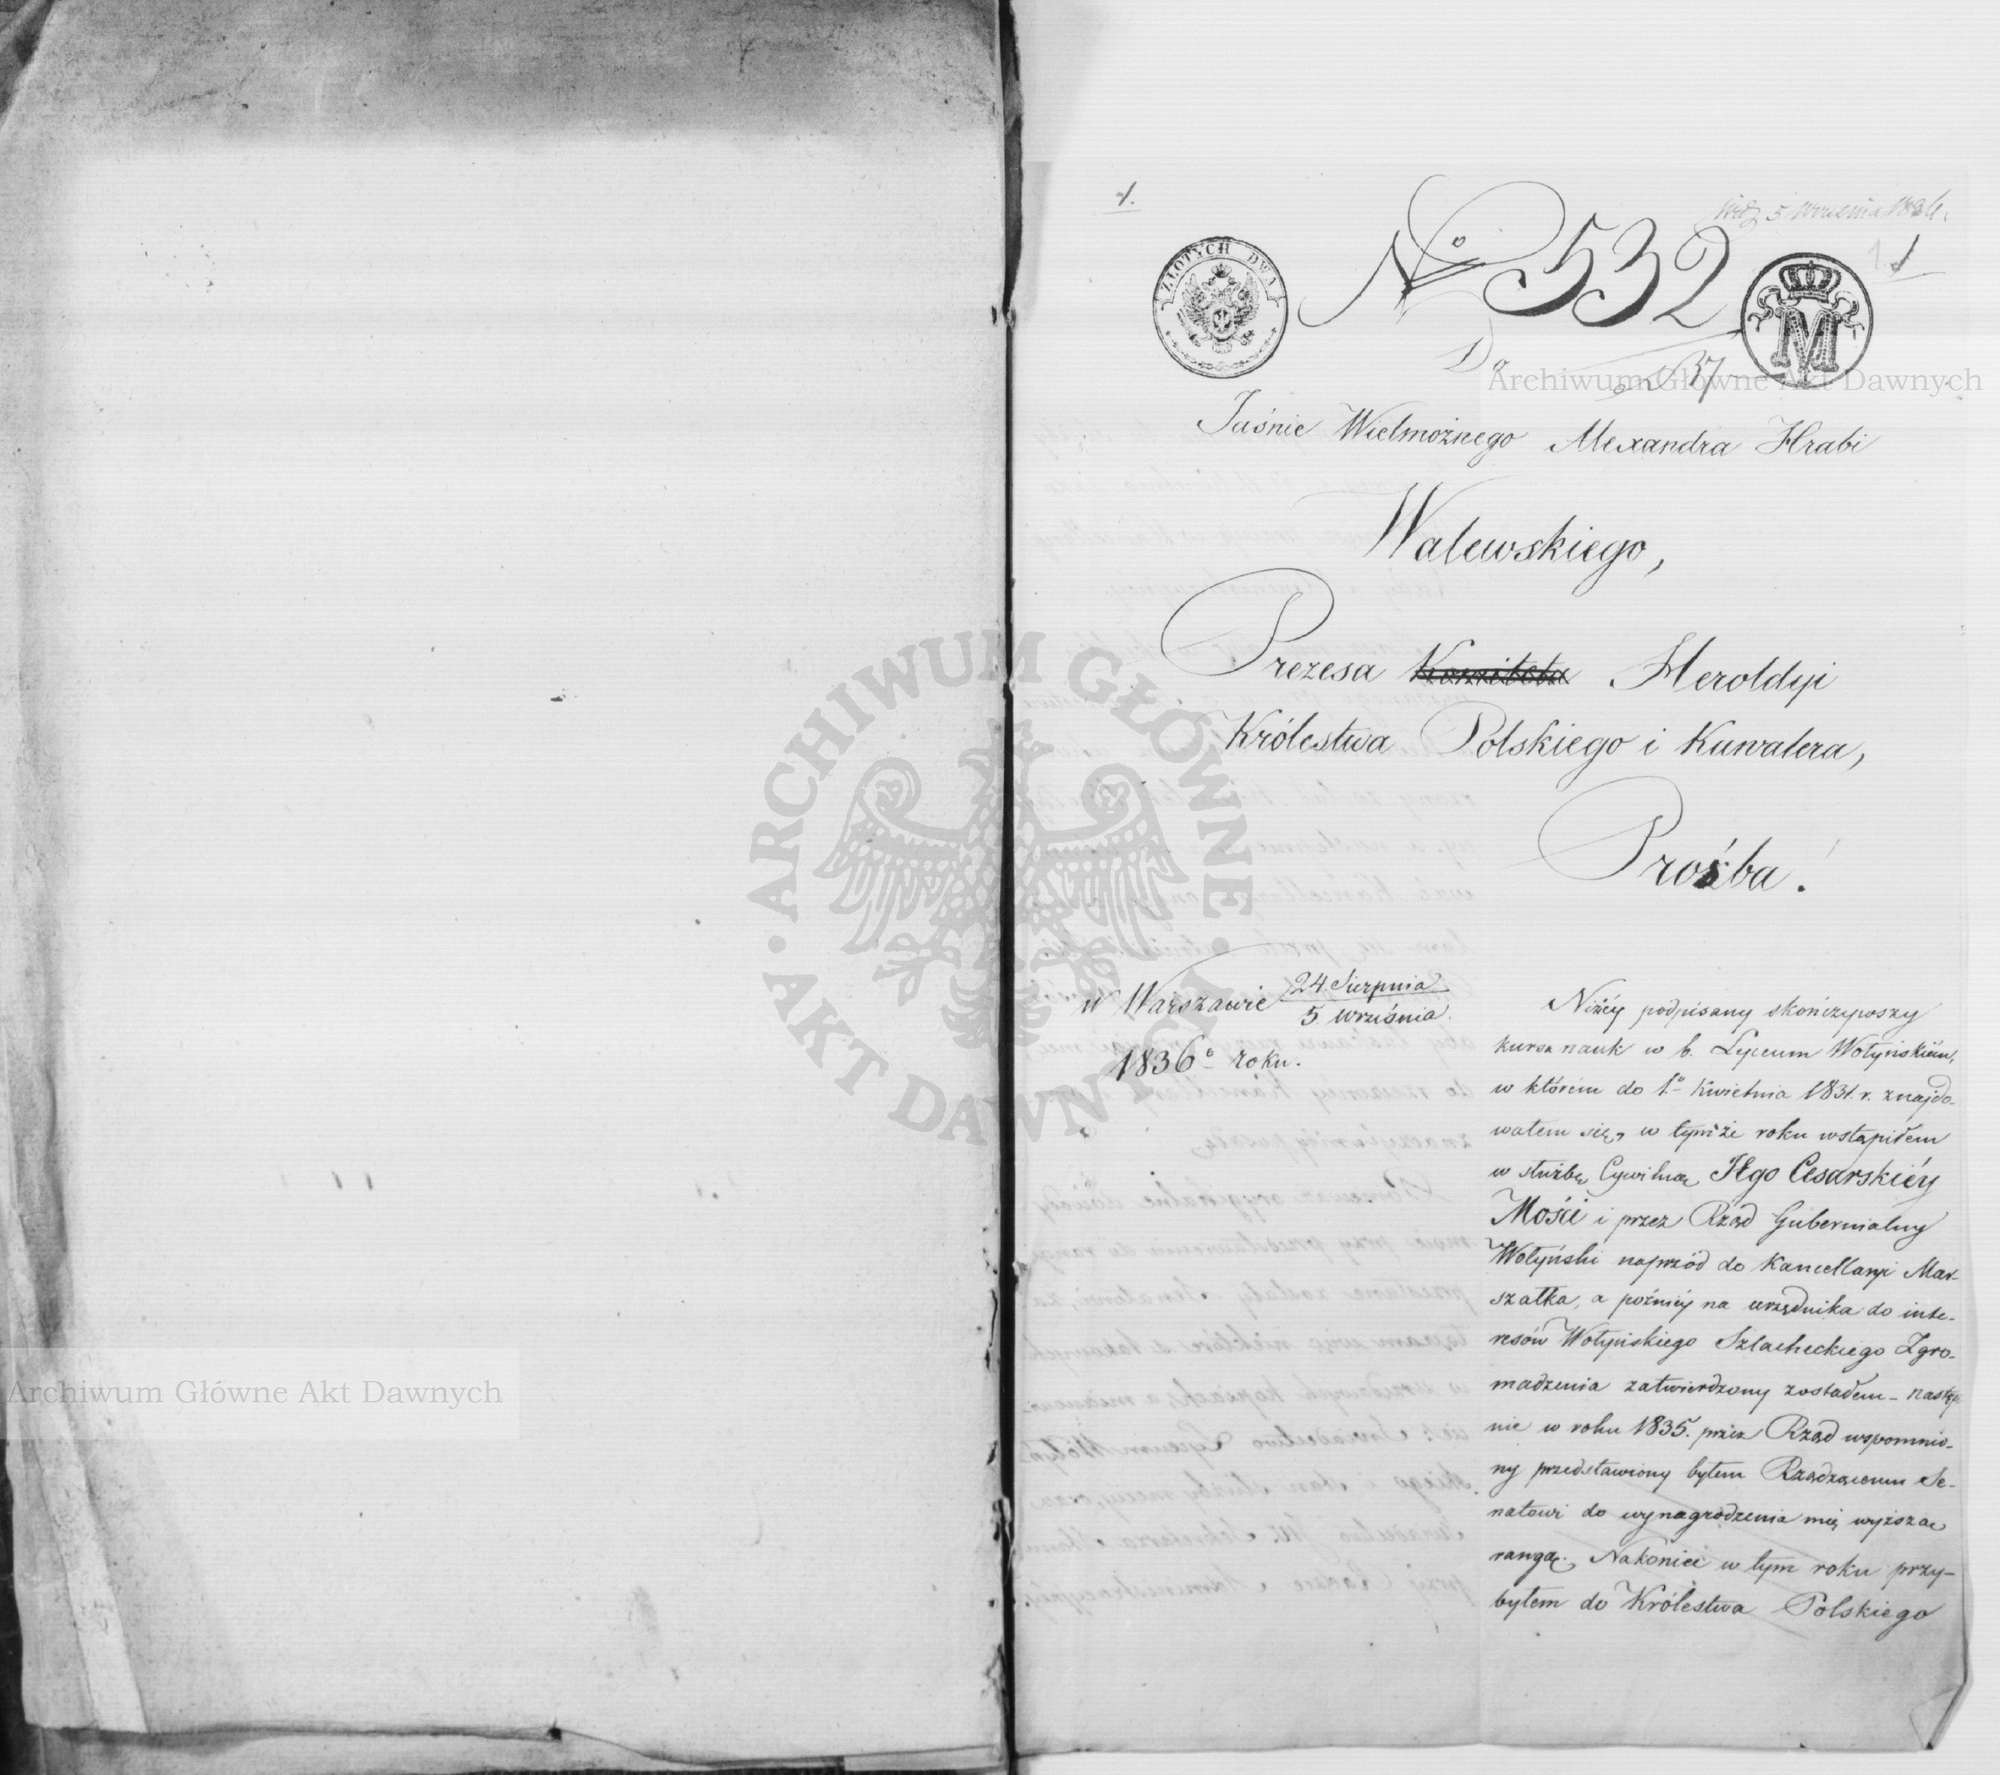 1.
5 Września 1836.
ZŁOTYCH DWA
No 532
1
Do
37
M
Jaśnie Wielmożnego Alexandra Hrabi
Walewskiego,
Prezesa Komitetu Heroldyi
Królestwa Polskiego i Kawalera,
Prośba!
w Warszawie 24 Sierpnia
5. września.
1836o roku.
Niżéy podpisany skończywszy
kurs nauk w b. Lyceum Wołyńskiém,
w którem do 1o Kwietnia 1831. r. znajdo-
wałem się, w tymże roku wstąpiłem
w służbę Cywilną JEgo Cesarskiéy
Mości i przez Rząd Gubernialny
Wołyński naprzód do Kancellaryi Mar-
szałka, a poźniéy na urzędnika do inte-
resów Wołyńskiego Szlacheckiego Zgro-
madzenia zatwierdzony zostałem – następ-
nie w roku 1835. przez Rząd wspomnio-
ny przedstawiony byłem Rządzącemu Se-
natowi do wynagrodzenia mię wyższą
rangą. Nakoniec w tym roku przy-
byłem do Królestwa Polskiego
ARCHIWUM GŁÓWNE AKT DAWNYCH
Archiwum Główne Akt Dawnych
Archiwum Główne Akt Dawnych